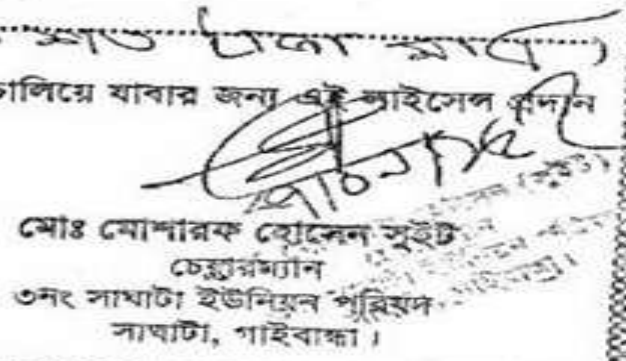 শত টাকা মাত্র)
চালিয়ে যাবার জন্য এই লাইসেন্স প্রদান
মোঃ মোশারফ হোসেন সুইট
চেয়ারম্যান
৩নং সাঘাটা ইউনিয়ন পরিষদ
সাঘাটা, গাইবান্ধা।